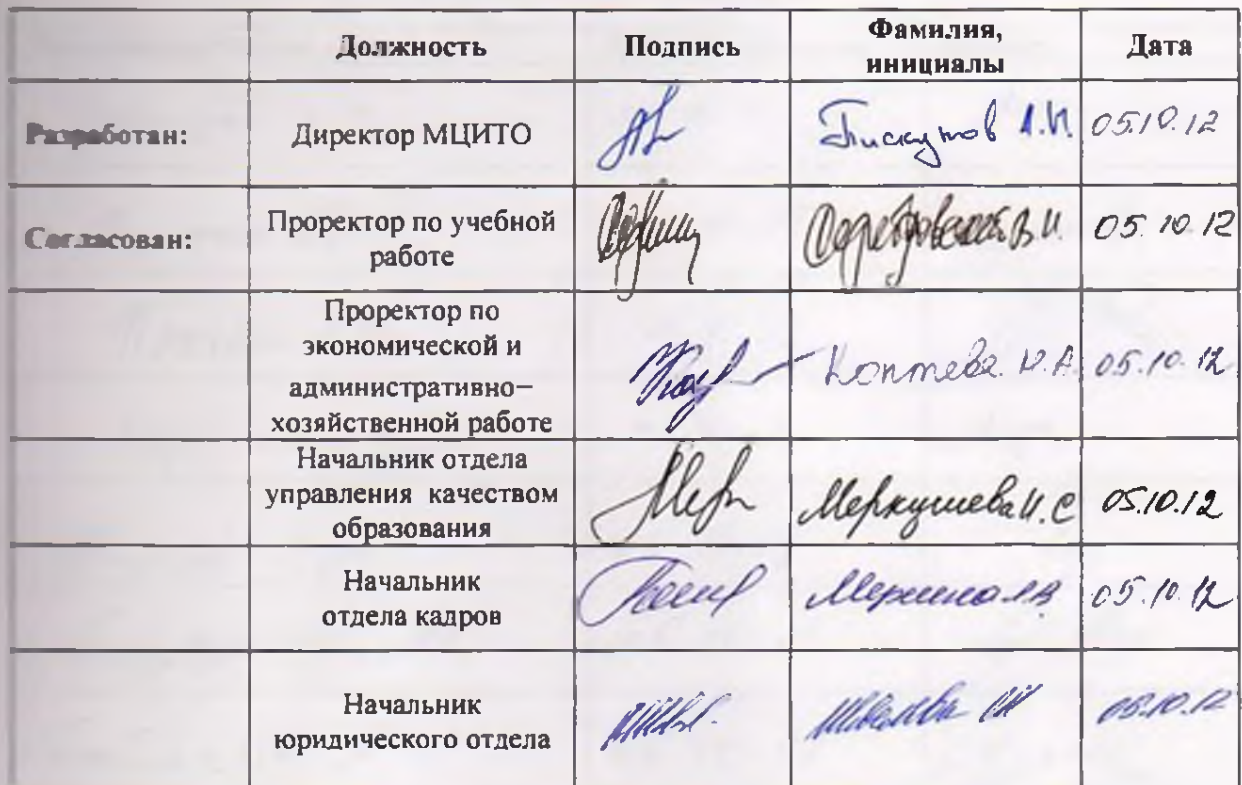 Должность Подпись Фамилия, Дата
инициалы
Разработан: Директор МЦИТО Пискунов А.И. 05.10.12
Согласован: Проректор по учебной В.И. 05.10.12
работе
Проректор по
экономической и
административно–
хозяйственной работе
Коптева Н.А. 05.10.12
Начальник отдела
управления качеством
образования
Меркушева И.С 05.10.12
Начальник
отдела кадров
05.10.12
Начальник
юридического отдела
05.10.12